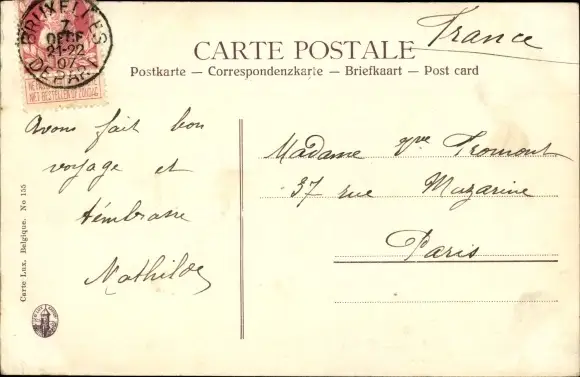 BRUXELLES
7
DECE
21-22
07
DEPART
NIET BESTELLEN OP ZONDAG
France
CARTE POSTALE
Postkarte — Correspondenzkarte — Briefkaart — Post card
Avons fait bon
voyage et
t'embrasse
Mathilde
Madame Vve Fromont
37 rue Mazarine
Paris
Carte Lux. Belgique. No 155